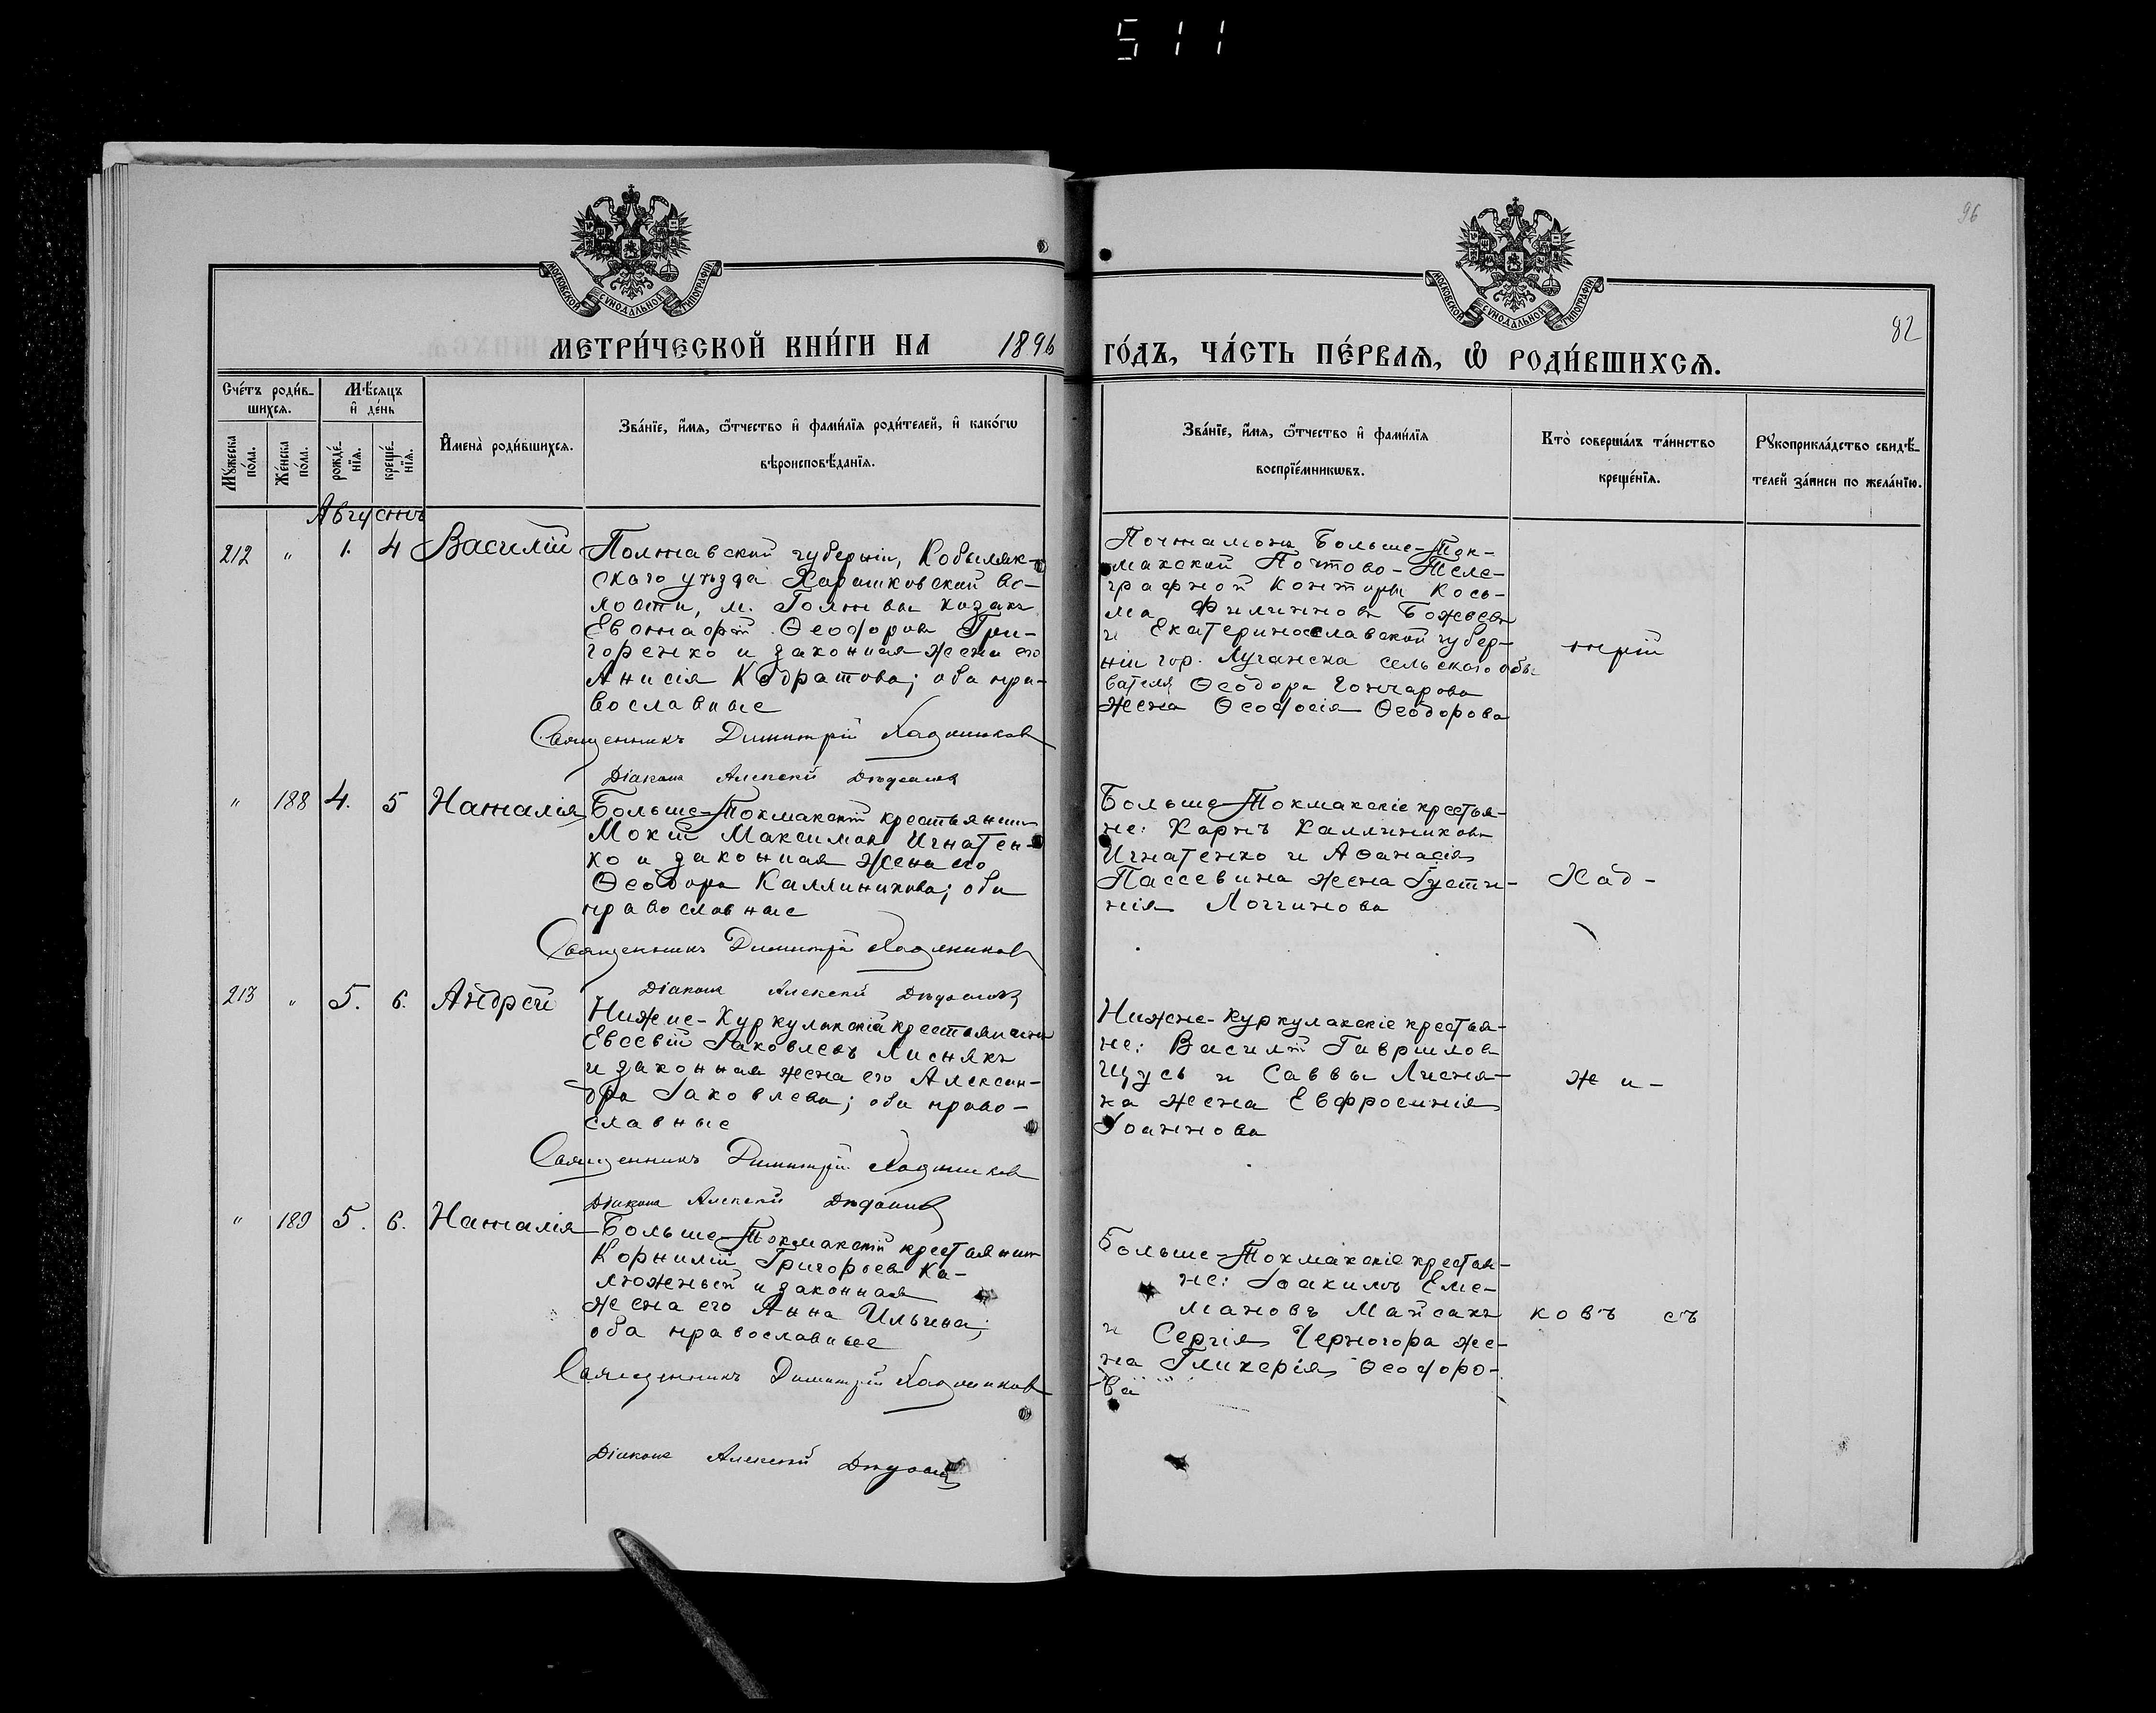 511
96
82
МОСКОВСКОЙ СУНОДАЛЬНОЙ ТИПОГРАФІИ
МОСКОВСКОЙ СУНОДАЛЬНОЙ ТИПОГРАФІИ
МЕТРИ́ЧЕСКОЙ КНИ́ГИ НА 1896 ГО́ДЪ, ЧА́СТЬ ПЕ́РВАѦ, Ѽ РОДИ́ВШИХСѦ.
Сче́тъ роди́в-
шихсѧ.
Мꙋжеска
по́ла.
Же́нска
по́ла.
Мѣ́сѧцъ
и҆ де́нь
рожде́-
нїѧ.
креще́-
нїѧ.
И҆мена̀ роди́вшихсѧ.
Зва́нїе, и҆́мѧ, ѻ҆́тчество и҆ фами́лїѧ роди́телей, и҆ како́гѡ
вѣроисповѣ́данїѧ.
Зва́нїе, и҆́мѧ, ѻ҆́тчество и҆ фами́лїѧ
воспрїе́мникѡвъ.
Кто̀ соверша́лъ та́инство
креще́нїѧ.
Рꙋкоприкла́дство свидѣ́-
телей за́писи по жела́нїю.
Августъ
212 " 1. 4 Василій
Полтавской губерніи, Кобыляк-
скаго уѣзда
лости, м. козакъ
Ѳеодоровъ Гри-
горенко и законная жена его
Анисія Кодратова; оба пра-
вославные
Священникъ Димитрій Хаджиновъ
Діаконъ Алексій
Больше-Ток-
макской Почтово-Теле-
графной Конторы Кось-
ма Филиппов
и Екатеринославской губер-
ніи гор. Луганска сельскаго обы
вателя Ѳеодора Гончарова
жена Ѳеодосія Ѳеодорова
" 188 4. 5 Наталія
Больше-Токмакскій крестьянинъ
Мокій Максимовъ Игнатен-
ко и законная жена его
Ѳеодора Каллиникова; оба
православные
Священникъ Димитрій Хаджиновъ
Діаконъ Алексій
Больше-Токмакскіе крестья-
не: Карпъ Каллиниковъ
Игнатенко и Аѳанасія
Пассевина жена Густи-
нія Логгинова
Хад-
213 " 5. 6. Андрей
Нижне-Куркулакскій крестьянинъ
Евсевій Іаковлевъ Лиснякъ
и законная жена его Алексан-
дра Іаковлева; оба право-
славные
Священникъ Димитрій Хаджиновъ
Діаконъ Алексій
Нижне-Куркулакскіе крестья-
не: Василій Гавриловъ
Щусь и Саввы Лисня-
ка жена Евфросинія
Іоаннова
жи-
" 189 5. 6. Наталія
Больше-Токмакскій крестьянинъ
Корнилій Григорьевъ Ка-
люжный и законная
жена его Анна Ильина;
оба православные
Священникъ Димитрій Хаджиновъ
Діаконъ Алексій
Больше-Токмакскіе крестья-
не: Іоакимъ Еме-
ліановъ Майсакъ
и Сергія Черногора же-
на Гликерія Ѳеодоро-
ва
ковъ съ